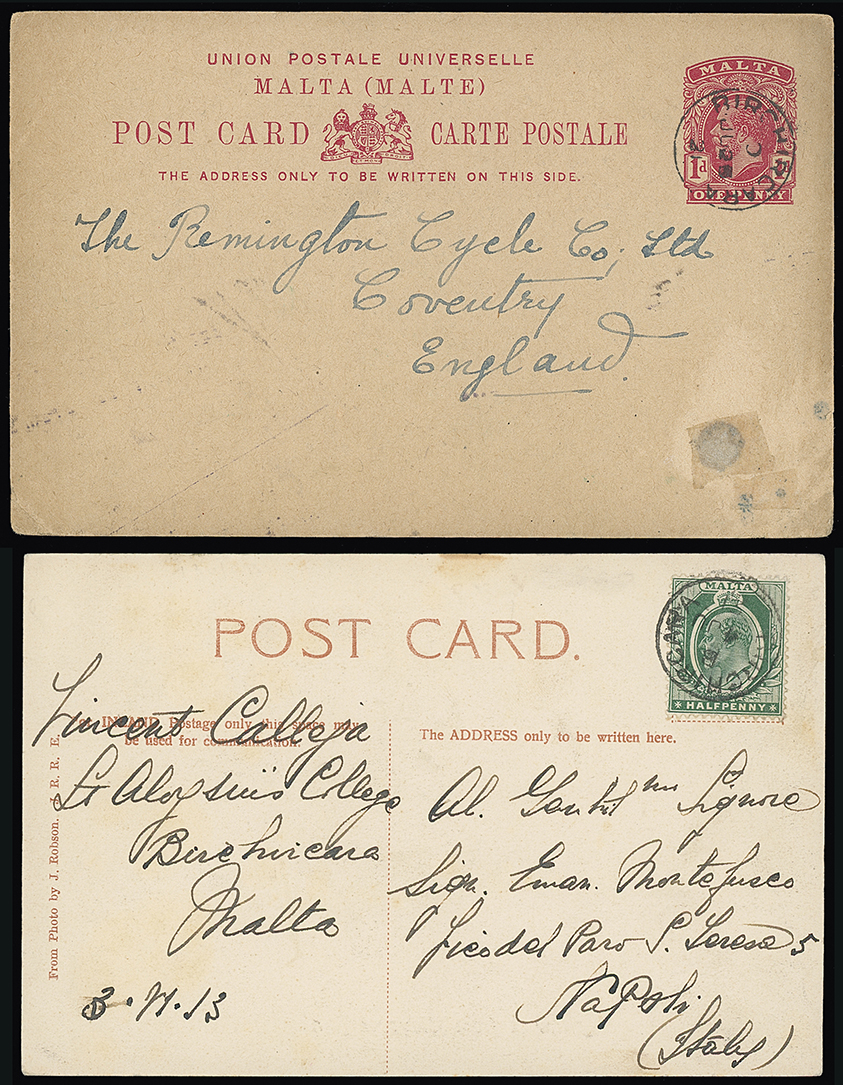 UNION POSTALE UNIVERSELLE
MALTA (MALTE)
POST CARD CARTE POSTALE
THE ADDRESS ONLY TO BE WRITTEN ON THIS SIDE.
MALTA
1d
ONE PENNY
The Remington Cycle Co, Ltd
Coventry
England
POST CARD.
MALTA
HALFPENNY
INLAND Postage only this space may
be used for communication.
The ADDRESS only to be written here.
From Photo by J. Robson. R. R. E.
Vincent Calleja
St Aloysius College
Birchircara
Malta
3.VI.13
Al. Gentil mo Signore
Sign. Eman. Montefusco
Vico del Paro S. Teresa 5
Napoli
(Italy)